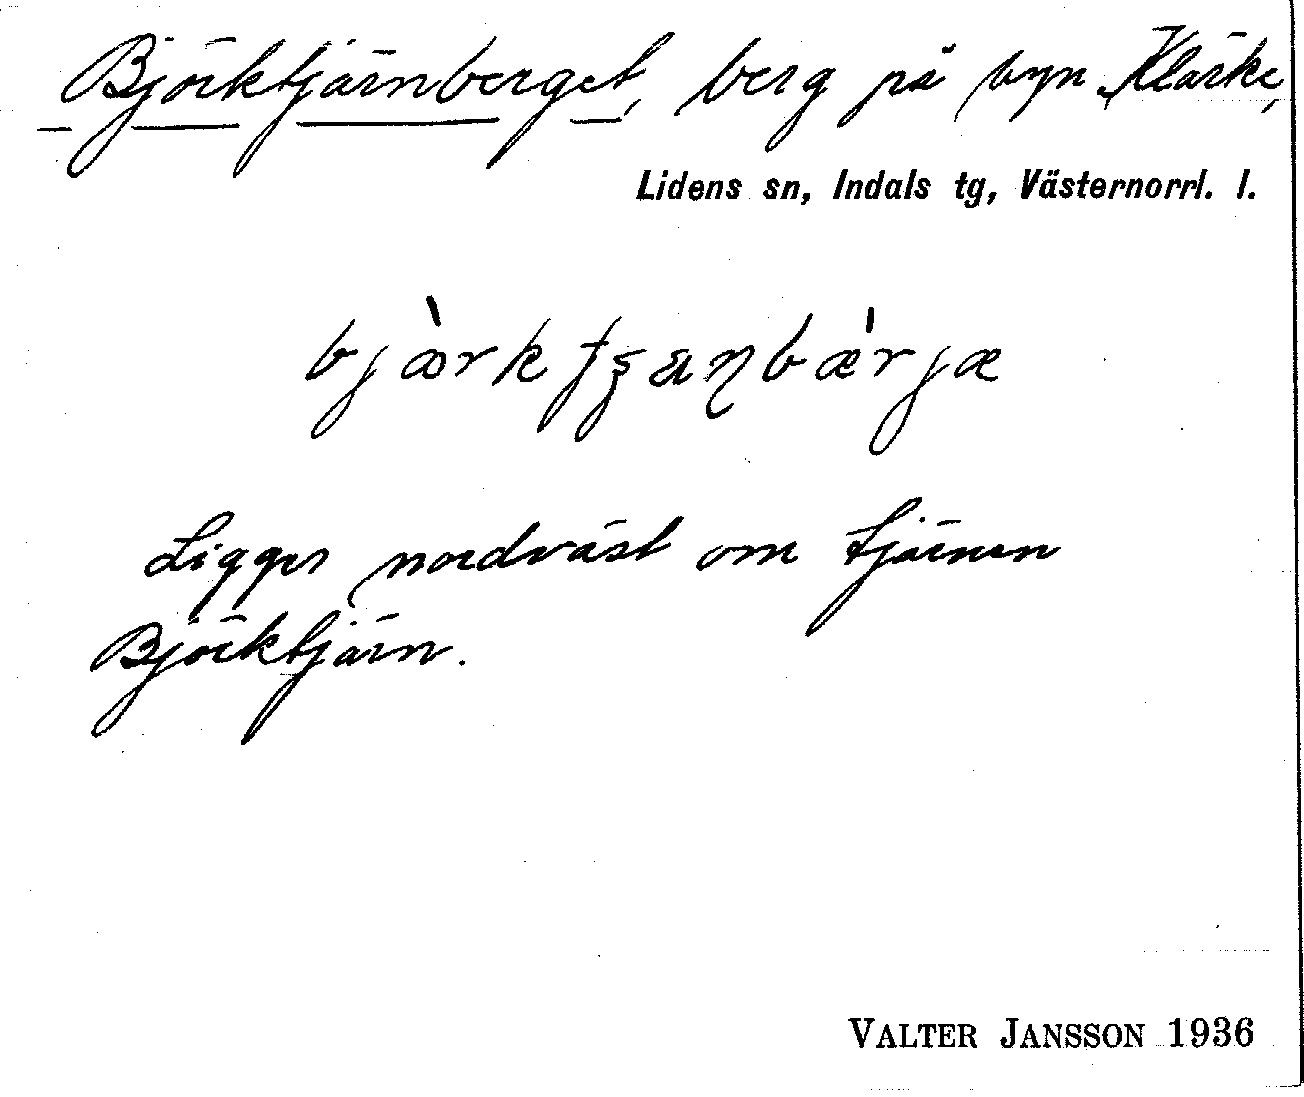 Björktjärnberget, berg på byn Klärke,
Lidens sn, Indals tg, Västernorrl. l.
Ligger nordväst om tjärnen
Björktjärn.
VALTER JANSSON 1936